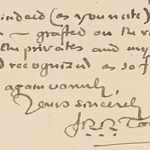 indeed (as you note)
– grafted on the
the privates and my
recognized as so f
again warmly,
Yours sincerely
J.R.R. To